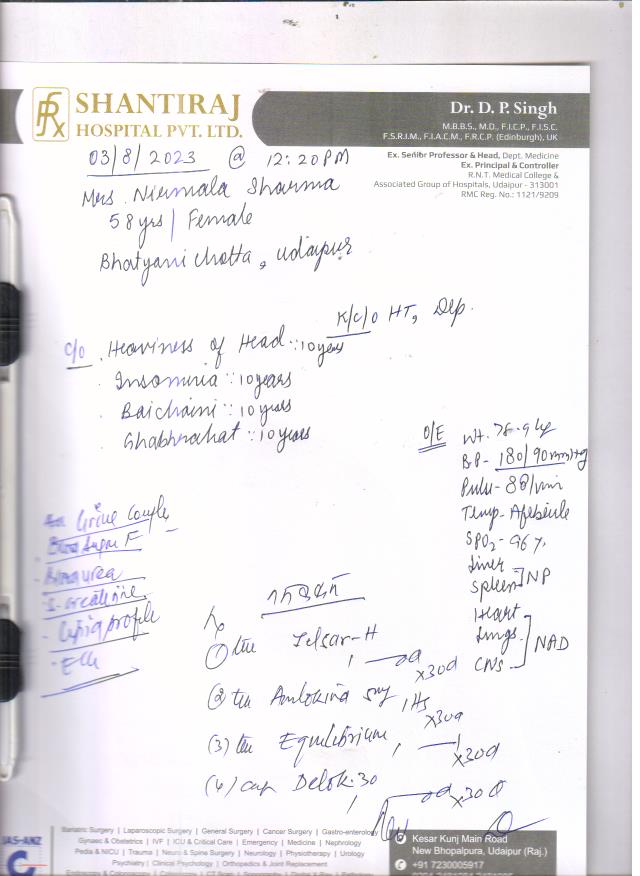 SHANTIRAJ
HOSPITAL PVT. LTD.
Dr. D. P. Singh
M.B.B.S., M.D., F.I.C.P., F.I.S.C.
F.S.R.I.M., F.I.A.C.M., F.R.C.P. (Edinburgh), UK
Ex. Senior Professor & Head, Dept. Medicine
Ex. Principal & Controller
R.N.T. Medical College &
Associated Group of Hospitals, Udaipur - 313001
RMC Reg. No.: 1121/9209
03/8/2023 @ 12:20PM
Mrs. Nirmala Sharma
58 yrs / Female
Bhatyani Chotta, Udaipur
K/C/O HT, Dep.
C/O . Heaviness of Head :: 10 years
. Insomnia :: 10 years
. Baichaini :: 10 years
. Ghabhrahat :: 10 years
O/E Wt. 78.9 kg
BP- 180/90 mmHg
Pulse- 88/min
Temp- Afebrile
SPO2- 96%
Liver
Spleen NP
Heart
Lungs NAD
CNS
Urine Comple
Blood Sugar F
Blood urea
S. creatinine
Lipid profile
ECG
(1) Telsar-H
x30d
(2) 5mg 1 HS
x30d
(3) Equilibrium
x30d
(4) cap Delok 30
x30d
Bariatric Surgery | Laparoscopic Surgery | General Surgery | Cancer Surgery | Gastro-enterology
Gynaec & Obstetrics | IVF | ICU & Critical Care | Emergency | Medicine | Nephrology
Pedia & NICU | Trauma | Neuro & Spine Surgery | Neurology | Physiotherapy | Urology
Psychiatry | Clinical Psychology | Orthopedics & Joint Replacement
JAS-ANZ
Kesar Kunj Main Road
New Bhopalpura, Udaipur (Raj.)
+91 7230005917